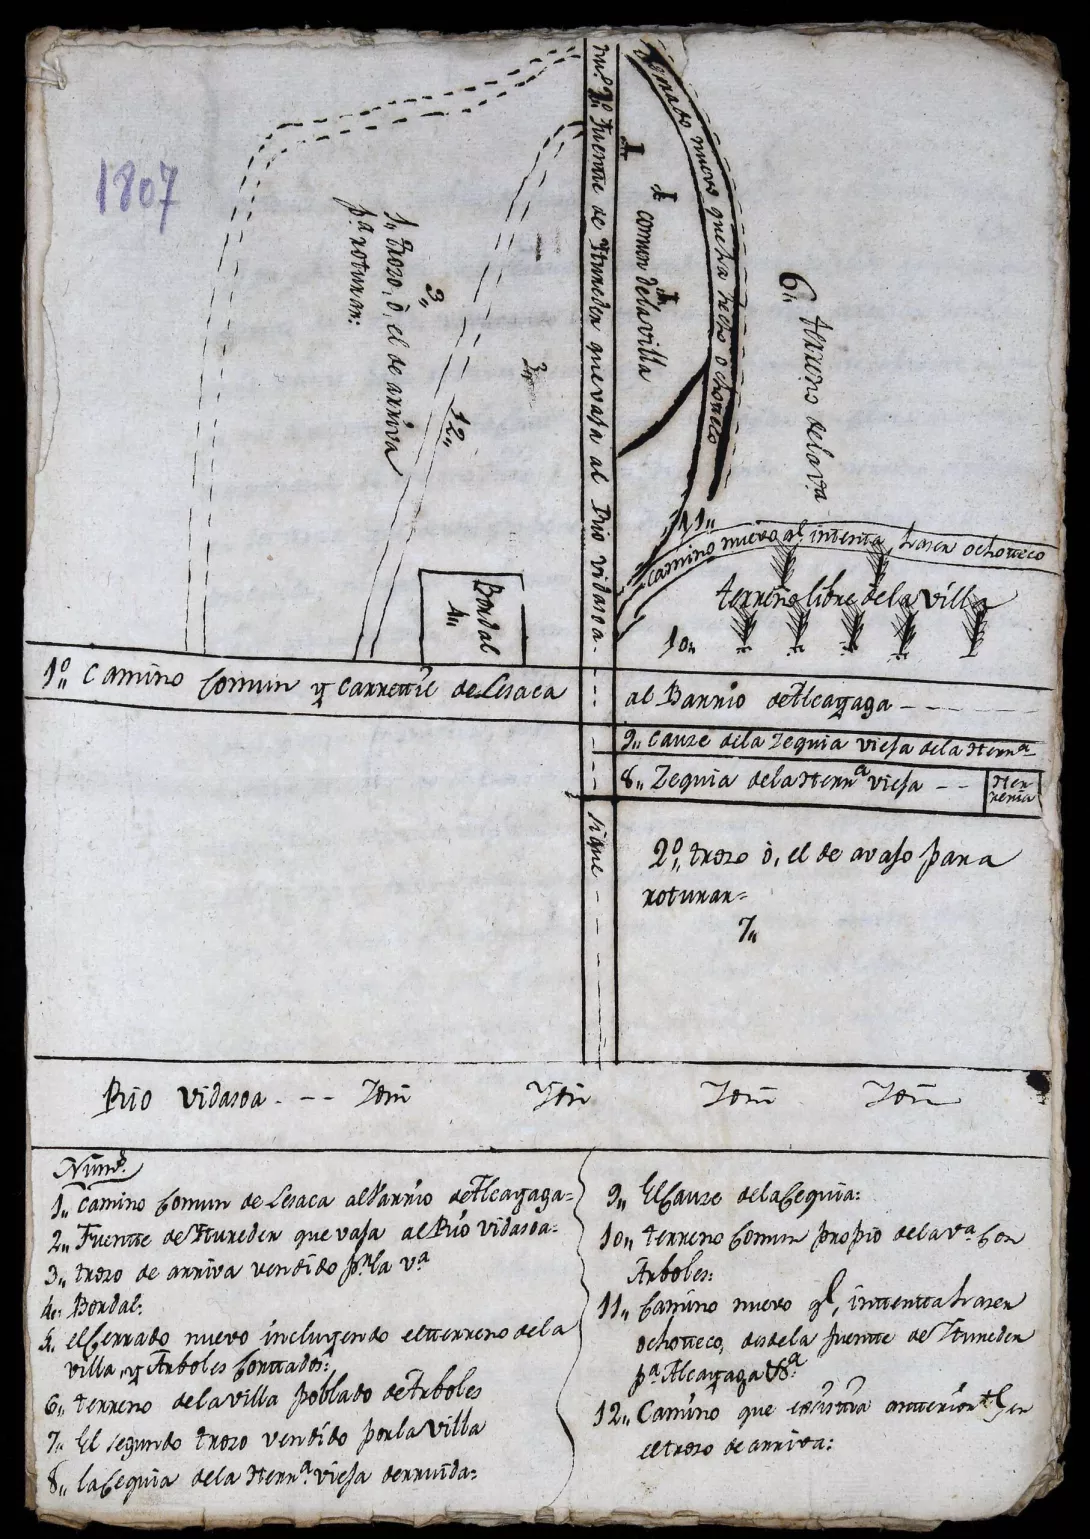 1807
num.º 2º fuente de Ytureden que vaja al Rio vidasoa.
Zerrado nuevo que ha hecho ochoteco
comun de la villa
6,, terreno de la vª
1,, trozo, ò, el de arriva
pª roturar:
3,,
2,,
12,,
11,,
camino nuevo q.l intenta hazer ochoteco
terreno libre de la villa
10,,
Bordal
4,,
1º,, Camino Comun y Carretil de Lesaca
al Barrio de Alcayaga
9,, Cauze de la Zequia vieja de la Herrª
8,, Zequia de la Herrª vieja
Herreria
sigue
2º,, trozo ò, el de avajo para
roturar=
7,,
Rio Vidasoa - - - Ydem Ydem Ydem Ydem
Núms.
1,, Camino Comun de Lesaca al Varrio de Alcayaga=
2,, Fuente de Ytureden que vaja al Rio Vidasoa:
3,, trozo de arriva vendido pr. la vª
4,, Bordal:
5. el Cerrado nuevo incluyendo el terreno de la
villa, y Arboles Cortados:
6,, terreno de la villa poblado de Arboles
7,, El segundo trozo vendido por la Villa
8,, la Cequia de la Herrª vieja derruida:
9,, El Cauze de la Cequia:
10,, terreno Comun propio de la vª Con
Arboles:
11,, Camino nuevo q.l, intenta hazer
ochoteco, desde la fuente de Ytureden
pª Alcayaga
12,, Camino que existia anteriormte. en
el trozo de arriva: